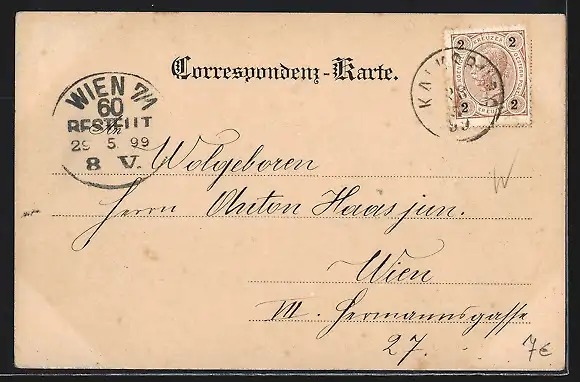 Correspondenz-Karte.
2 2
KREUZER
2 2
WIEN 7/1
60
BESTELLT
29 5 99
8 V.
Wolgeboren
Herrn Anton Haas jun.
Wien
VII. Hermannsgasse
27.
7€